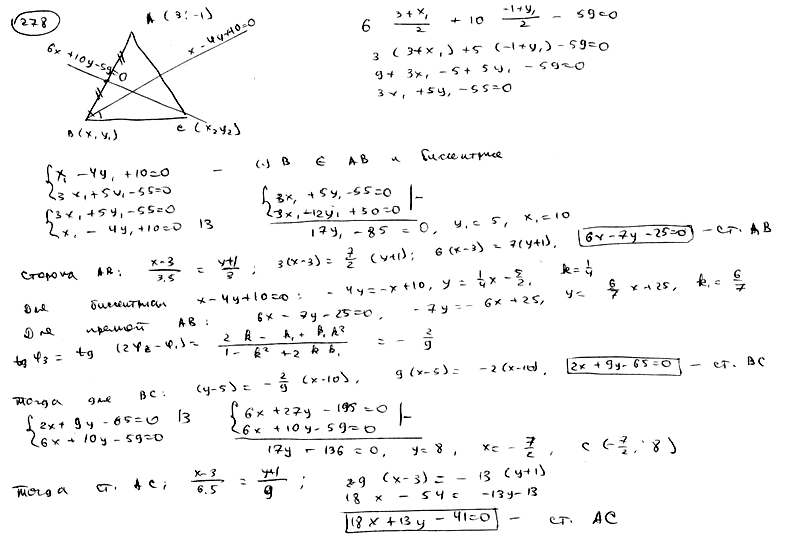 278
A (3; -1)
x - 4y + 10 = 0
6x + 10y - 59 = 0
B(x, y₁)
C (x₂y₂)
6 (3+x₁)/2 + 10 (-1+y₁)/2 - 59=0
3 (3+x₁) + 5 (-1+y₁) - 59=0
9+ 3x₁ - 5 + 5y₁ - 59=0
3x₁ + 5y₁ - 55=0
{ x₁ - 4y₁ + 10=0 — (·) B ∈ AB и биссектрисе
{ 3x₁ + 5y₁ - 55=0
{ 3x₁ + 5y₁ - 55=0
{ x₁ - 4y₁ + 10=0 |3
{ 3x₁ + 5y₁ - 55=0 | -
{ 3x₁ - 12y₁ + 30=0
17y₁ - 85 = 0, y₁ = 5, x₁ = 10
сторона AB: (x-3)/3.5 = (y+1)/3 ; 3(x-3) = 7/2 (y+1); 6(x-3) = 7(y+1), 6x - 7y - 25=0 — ст. AB
Для биссектрисы x - 4y + 10=0: - 4y = -x + 10, y = 1/4 x - 5/2, k = 1/4
Для прямой AB: 6x - 7y - 25=0, - 7y = - 6x + 25, y = 6/7 x + 25, k₁ = 6/7
tg φ₃ = tg (2φ₂ - φ₁) = (2k - k₁ + k₁k²)/(1 - k² + 2 k k₁) = - 2/9
Тогда для BC: (y-5) = - 2/9 (x-10), 9(x-5) = -2(x-10), 2x + 9y - 65=0 — ст. BC
{ 2x + 9y - 65=0 |3
{ 6x + 10y - 59=0
{ 6x + 27y - 195 = 0 | -
{ 6x + 10y - 59=0
17y - 136 = 0, y = 8, x = - 7/2, C (-7/2, 8)
Тогда ст. AC: (x-3)/6.5 = (y+1)/9 ; 29 (x-3) = - 13 (y+1)
18 x - 54 = -13y - 13
18x + 13y - 41=0 — ст. AC